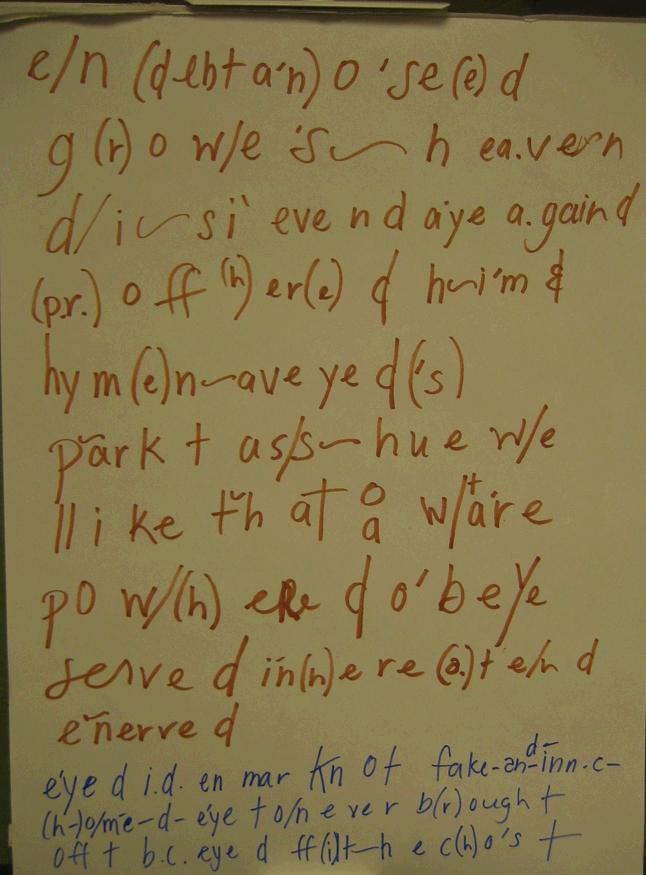 e/n (debt a'n) o 'se(e) d
g (r) o w/e 's~ h ea.vern
d/i~si' eve n d a'ye a.gain d
(p.r.) o ff (h) er(e) & h~i'm &
hy m(e)n~ave ye d('s)
park t as/s~hue w/e
ll i ke th at o a w/are
po w/(h) ere d o' b e/ye
serve d in(n)e re (a.)t e/n d
enerve d
e'ye d i.d. en mar kn ot fake-an-d-inn-c-
(h-)o/me-d-e'ye t o/n e ver b(r)ough t
off t b.c. eye d ff(i)t~h e c(h)o's t